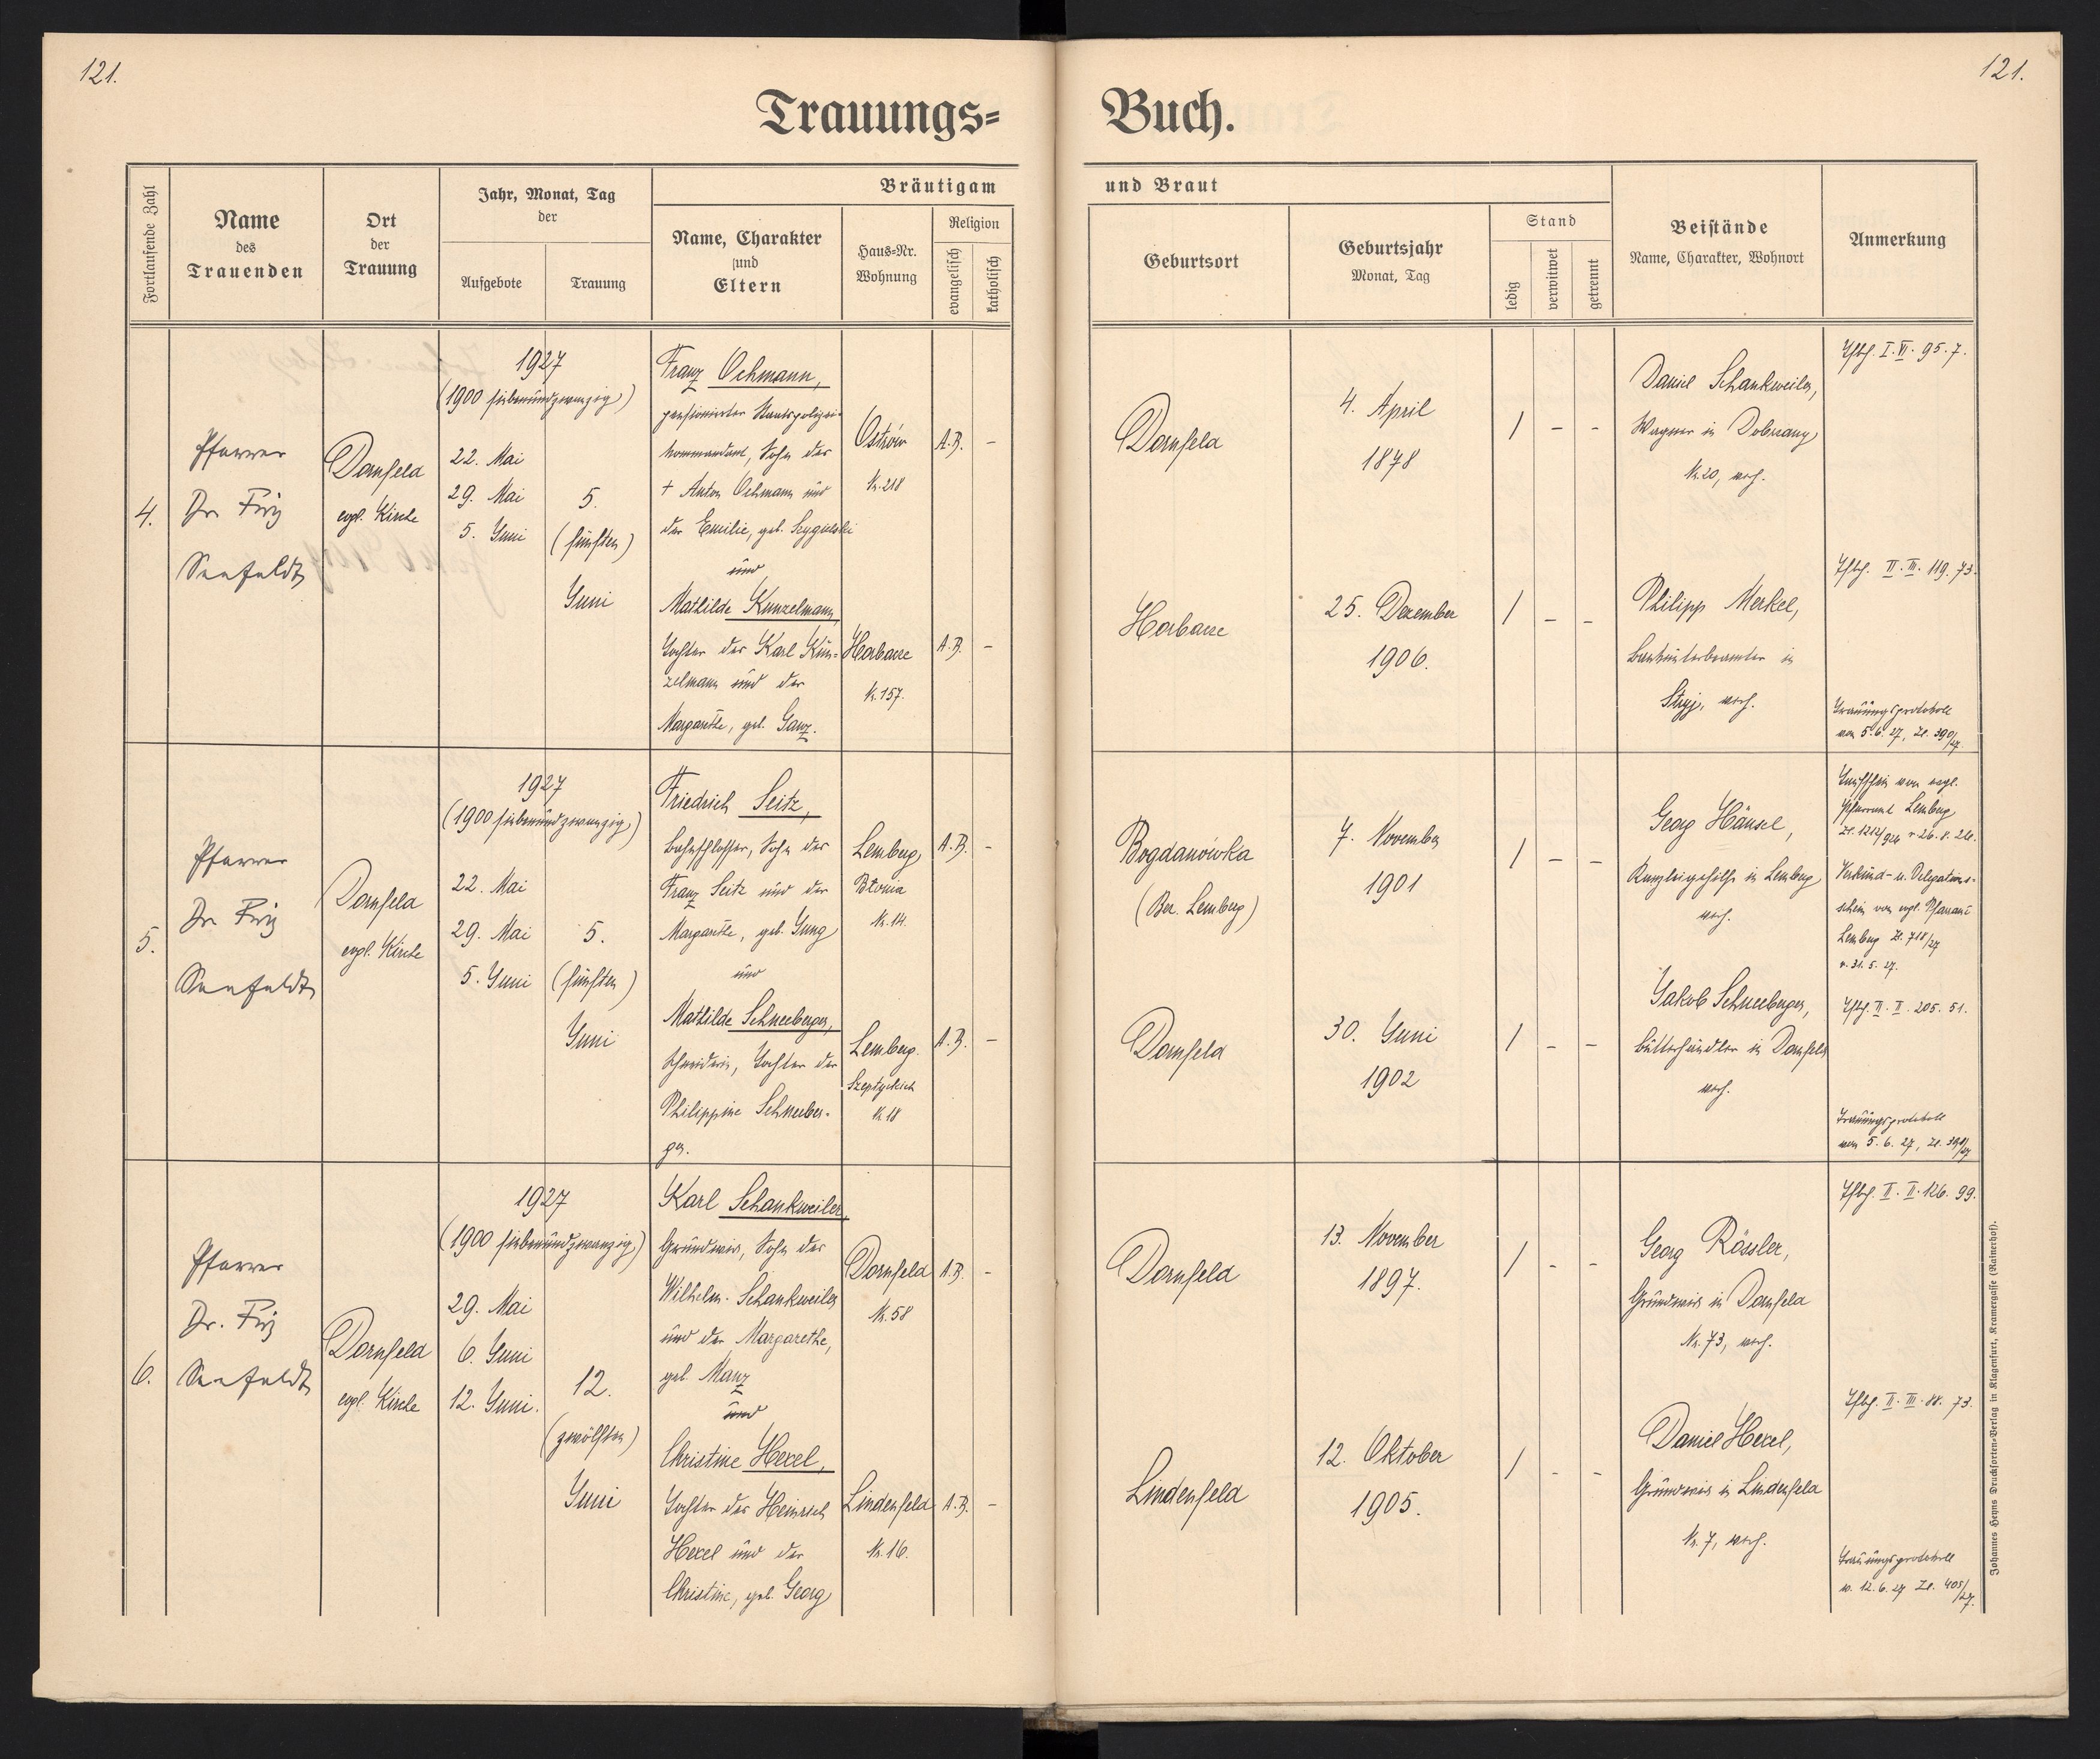 121.
121.
Trauungs=
Buch.
Fortlaufende Zahl
Name
des
Trauenden
Ort
der
Trauung
Jahr, Monat, Tag
der
Aufgebote
Trauung
Bräutigam
Name, Charakter
und
Eltern
Haus=Nr.
Wohnung
Religion
evangelisch
katholisch
und Braut
Geburtsort
Geburtsjahr
Monat, Tag
Stand
ledig
verwitwet
getrennt
Beistände
Name, Charakter, Wohnort
Anmerkung
4.
Pfarrer
Dr. Friz
Seefeldt
Dornfeld
evgl. Kirche
1927
(1900 siebenundzwanzig)
22. Mai
29. Mai
5. Juni
5.
(fünften)
Juni
Franz Oehmann,
pensionierter Staatspolizei-
kommandant, Sohn des
+ Anton Oehmann und
der Emilie, geb.
und
Mathilde Kunzelmann,
Tochter des Karl Kun=
zelmann und der
Margarethe, geb. Ganz.
Ostrów
Nr. 218
A.B.
-
Horbacze
Nr. 157.
A.B.
-
Dornfeld
4. April
1878
/ - -
Daniel Schankweiler,
Wagner in Dobrzany
Nr. 20, evgl.
Horbacze
25. Dezember
1906.
/ - -
Philipp Merkel,
in
Stryj, evgl.
I. VI. 95. 7.
II. III. 119. 73.
Trauungsprotokoll
vom 5. 6. 27, Zl. 390/27
5.
Pfarrer
Dr. Friz
Seefeldt
Dornfeld
evgl. Kirche
1927
(1900 siebenundzwanzig)
22. Mai
29. Mai
5. Juni
5.
(fünften)
Juni
Friedrich Seitz,
Bahnschlosser, Sohn des
Franz Seitz und der
Margarethe, geb. Jung
und
Mathilde Schneeberger,
Schneiderin, Tochter der
Philippine Schneeber-
ger.
Lemberg,
Błonia
Nr. 14.
A.B.
-
Lemberg.
Szeptyckich
Nr. 18
A.B.
-
Bogdanówka
(Bez. Lemberg)
7. November
1901
/ - -
Georg Hänsel,
Kanzleigehilfe in Lemberg
evgl.
Dornfeld
30. Juni
1902
/ - -
Jakob Schneeberger,
Butterhändler in Dornfeld
evgl.
Taufschein vom evgl.
Pfarramt Lemberg
Zl. 1212/926 v. 26. 8. 26.
Verkünd- u. Delegations-
schein vom evgl. Pfarramt
Lemberg Zl. 718/27
v. 31. 5. 27.
II. II. 205. 51.
Trauungsprotokoll
vom 5. 6. 27, Zl. 391/27
6.
Pfarrer
Dr. Friz
Seefeldt
Dornfeld
evgl. Kirche
1927
(1900 siebenundzwanzig)
29. Mai
6. Juni
12. Juni.
12.
(zwölften)
Juni
Karl Schankweiler,
Grundwirt, Sohn des
Wilhelm Schankweiler
und der Margarethe,
geb. Manz
und
Christine Hexel,
Tochter des Heinrich
Hexel und der
Christine, geb. Georg
Dornfeld
Nr. 58
A.B.
-
Lindenfeld
Nr. 16.
A.B.
-
Dornfeld
13. November
1897.
/ - -
Georg Rössler,
Grundwirt in Dornfeld
Nr. 73, evgl.
Lindenfeld
12. Oktober
1905.
/ - -
Daniel Hexel,
Grundwirt in Lindenfeld
Nr. 7, evgl.
II. II. 126. 99.
II. III. 88. 73.
Trauungsprotokoll
v. 12. 6. 27 Zl. 405/27.
Johannes Heyns Drucksorten=Verlag in Klagenfurt, Kramergasse (Rainerhof).